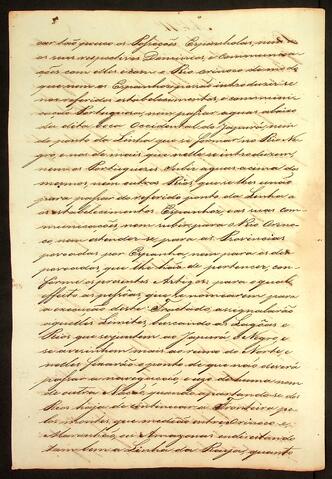 os seus respectivos Dominios, e Communica-
ções com elles e com o Rio Orinoco de modo
que nem os Espanhoes possão introduzir-se
nos referidos estabelecimentos, e communi-
cação Portugueza, nem passar aguas abaixo
da dita boca Occidental do Japurá, nem
do ponto da Linha que se formar no Rio Ne-
gro, e nos demais que nelle se introduzem;
nem os Portuguezes subir aguas acima dos
mesmos, nem outros Rios, que se lhes unão
para passar do referido ponto da Linha a
os estabelecimentos Espanhoes, e as suas com-
municações, nem subir para o Rio Orino-
co, nem estender-se para as Provincias
povoadas por Espanha, nem para os des-
povoados, que lhe hão de pertencer, con-
forme os presentes Artigos, para o qual
effeito as pessoas, que se nomearem para
a execução deste Tratado, assignalarão
aquelles Limites, buscando as Lagôas e
Rios, que se juntem ao Japurá e Negro, e
se avezinhem mais ao rumo do Norte, e
nelles fixarão o ponto de que não deverá
passar a navegação, e uso de huma nem
de outra Nação, quando apartando-se dos
Rios haja de continuar a Fronteira pe-
los Montes, que medeião entre o Orinoco, e
Maranhão, ou Amazonas, endireitando
tambem a Linha da Raya, quanto